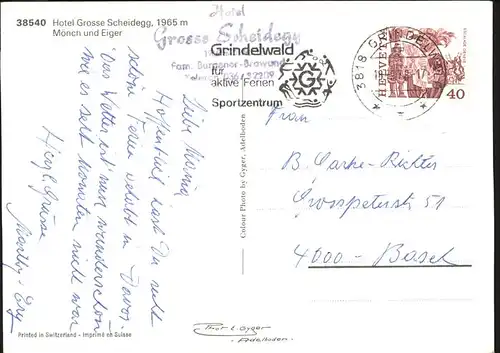 38540 Hotel Grosse Scheidegg, 1965 m
Mönch und Eiger
Hotel
Grosse Scheidegg
Fam. Burgener-Brawand
Grindelwald
für
aktive Ferien
Sportzentrum
G
3818 GRINDELWALD
HELVETIA
40
Liebe
Hoffentlich hast Du recht
schöne Ferien verlebt in Davos.
Das Wetter ist nun wunderschön
wie es seit Monaten nicht war
Herzl. Grüsse
Frau
B. Garke-Richter
Grosspeterstr. 51
4000 - Basel
Colour Photo by Gyger, Adelboden
Printed in Switzerland - Imprimé en Suisse
Phot. E. Gyger
Adelboden